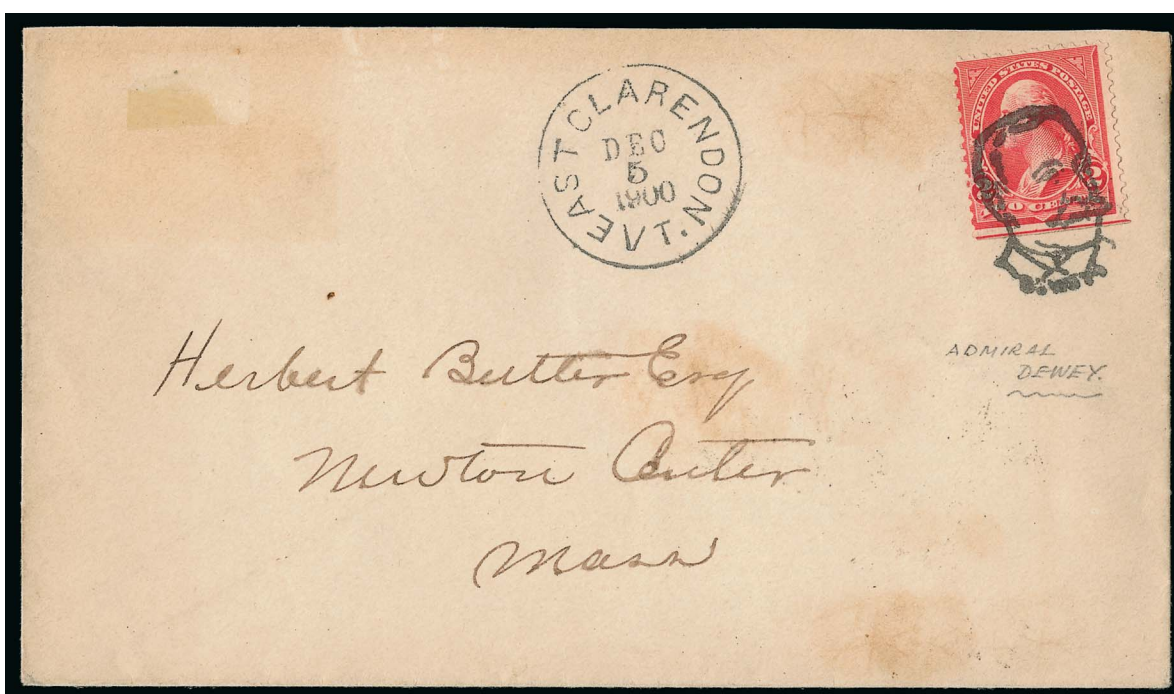 EAST CLARENDON VT.
DEC
5
1900
UNITED STATES POSTAGE
TWO CENTS
ADMIRAL
DEWEY.
Herbert Butter Esq
Newton Center
Mass